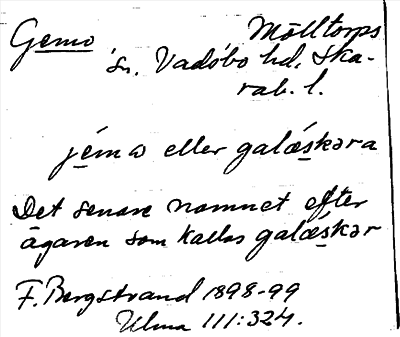 Gemo Mölltorps
sn. Vadsbo hd, Ska-
rab. l.
jémω eller galæskəra
Det senare namnet efter
ägaren som kallas galæskər
F. Bergstrand 1898-99
Ulma 111:324.